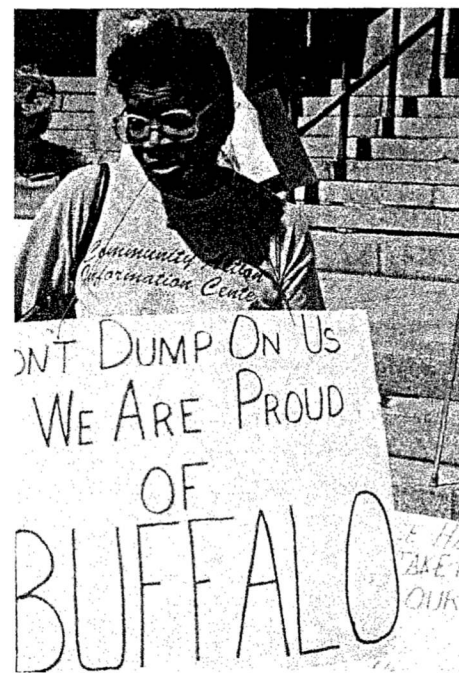 Community Action
Information Center
ON'T DUMP ON US
WE ARE PROUD
OF
BUFFALO
TAKE
OUR